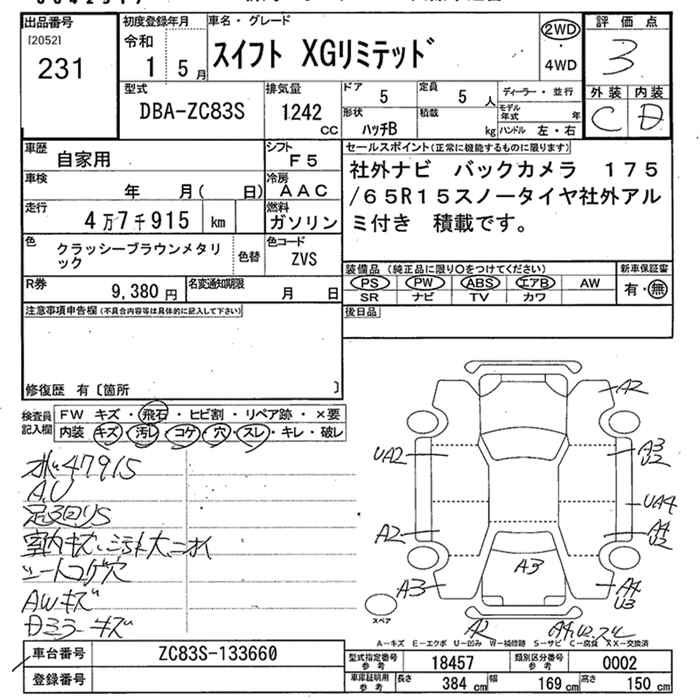 出品番号
[2052]
231
初度登録年月
令和
1 5月
車名・グレード
スイフト XGリミテッド
2WD
・
4WD
評価点
3
外装 内装
C D
型式
DBA-ZC83S
排気量
1242
CC
ドア
5
定員
5人
形状
ハッチB
積載
kg
ディーラー・並行
モデル年式 年
ハンドル 左・右
車歴
自家用
シフト
F5
車検
年 月( 日)
冷房
AAC
走行
4万7千915 km
燃料
ガソリン
色
クラッシーブラウンメタリ
ック
色替
色コード
ZVS
R券
9,380円
名変通知期限
月 日
セールスポイント(正常に機能するものに限ります)
社外ナビ バックカメラ 175
/65R15スノータイヤ社外アル
ミ付き 積載です。
装備品(純正品に限り○をつけてください)
PS PW ABS エアB AW
SR ナビ TV カワ
新車保証書
有・無
後日品
注意事項申告欄(不具合内容等は具体的に記入して下さい)
修復歴 有〔箇所 〕
検査員
記入欄
FW キズ・飛石・ヒビ割・リペア跡・×要
内装 キズ・汚レ・コゲ・穴・スレ・キレ・破レ
47915
A.U
室内キズ、
シートコゲ穴
AWキズ
Dミラーキズ
A2
UA2
A3
U2
UA4
A2
A4
U2
A3
A3
A4
U3
A2
スペア
A-キズ E-エクボ U-凹み W-補修跡 S-サビ C-腐食 XX-交換済
車台番号
ZC83S-133660
登録番号
型式指定番号
参考
18457
類別区分番号
参考
0002
車庫証明用
参考
長さ 384 cm 幅 169 cm 高さ 150 cm